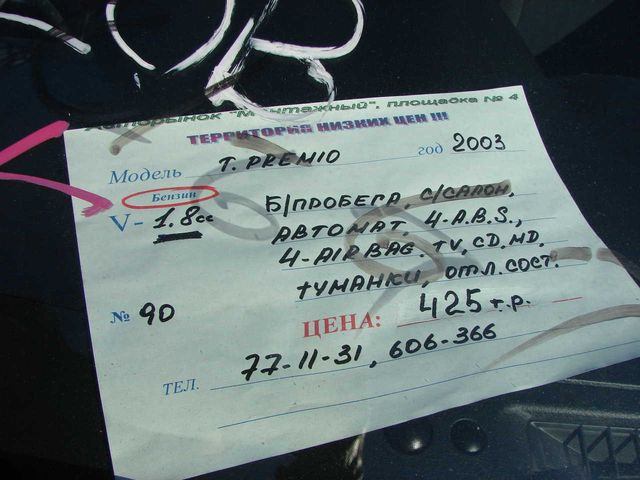 Авторынок "Монтажный", площадка № 4
ТЕРРИТОРИЯ НИЗКИХ ЦЕН !!!
Модель T. PREMIO год 2003
Бензин
V- 1.8cc
Б/ПРОБЕГА, С/САЛОН,
АВТОМАТ, 4-A.B.S.,
4-AIRBAG. TV, CD, MD.
ТУМАНКИ, ОТЛ. СОСТ.
№ 90
ЦЕНА: 425 т.р.
ТЕЛ. 77-11-31, 606-366